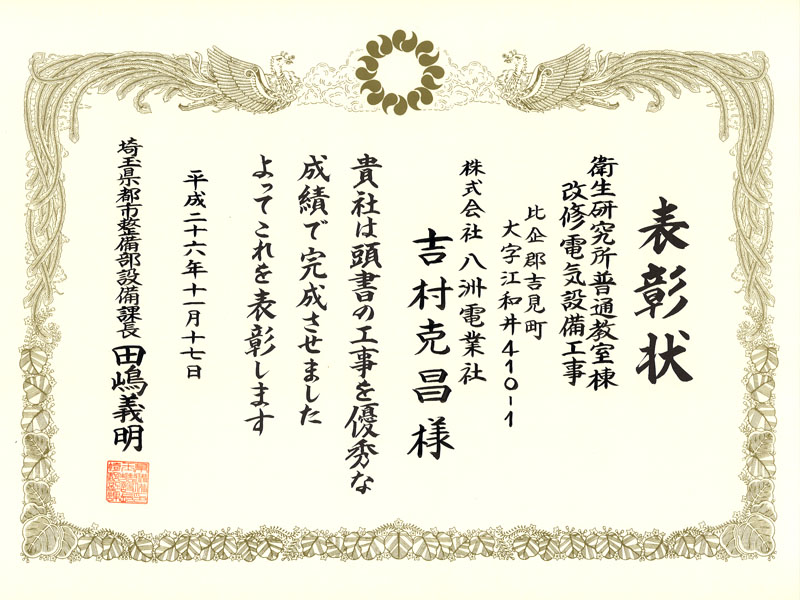 表彰状
衛生研究所普通教室棟
改修電気設備工事
比企郡吉見町
大字江和井410-1
株式会社 八洲電業社
吉村克昌様
貴社は頭書の工事を優秀な
成績で完成させました
よってこれを表彰します
平成二十六年十一月十七日
埼玉県都市整備部設備課長 田嶋義明